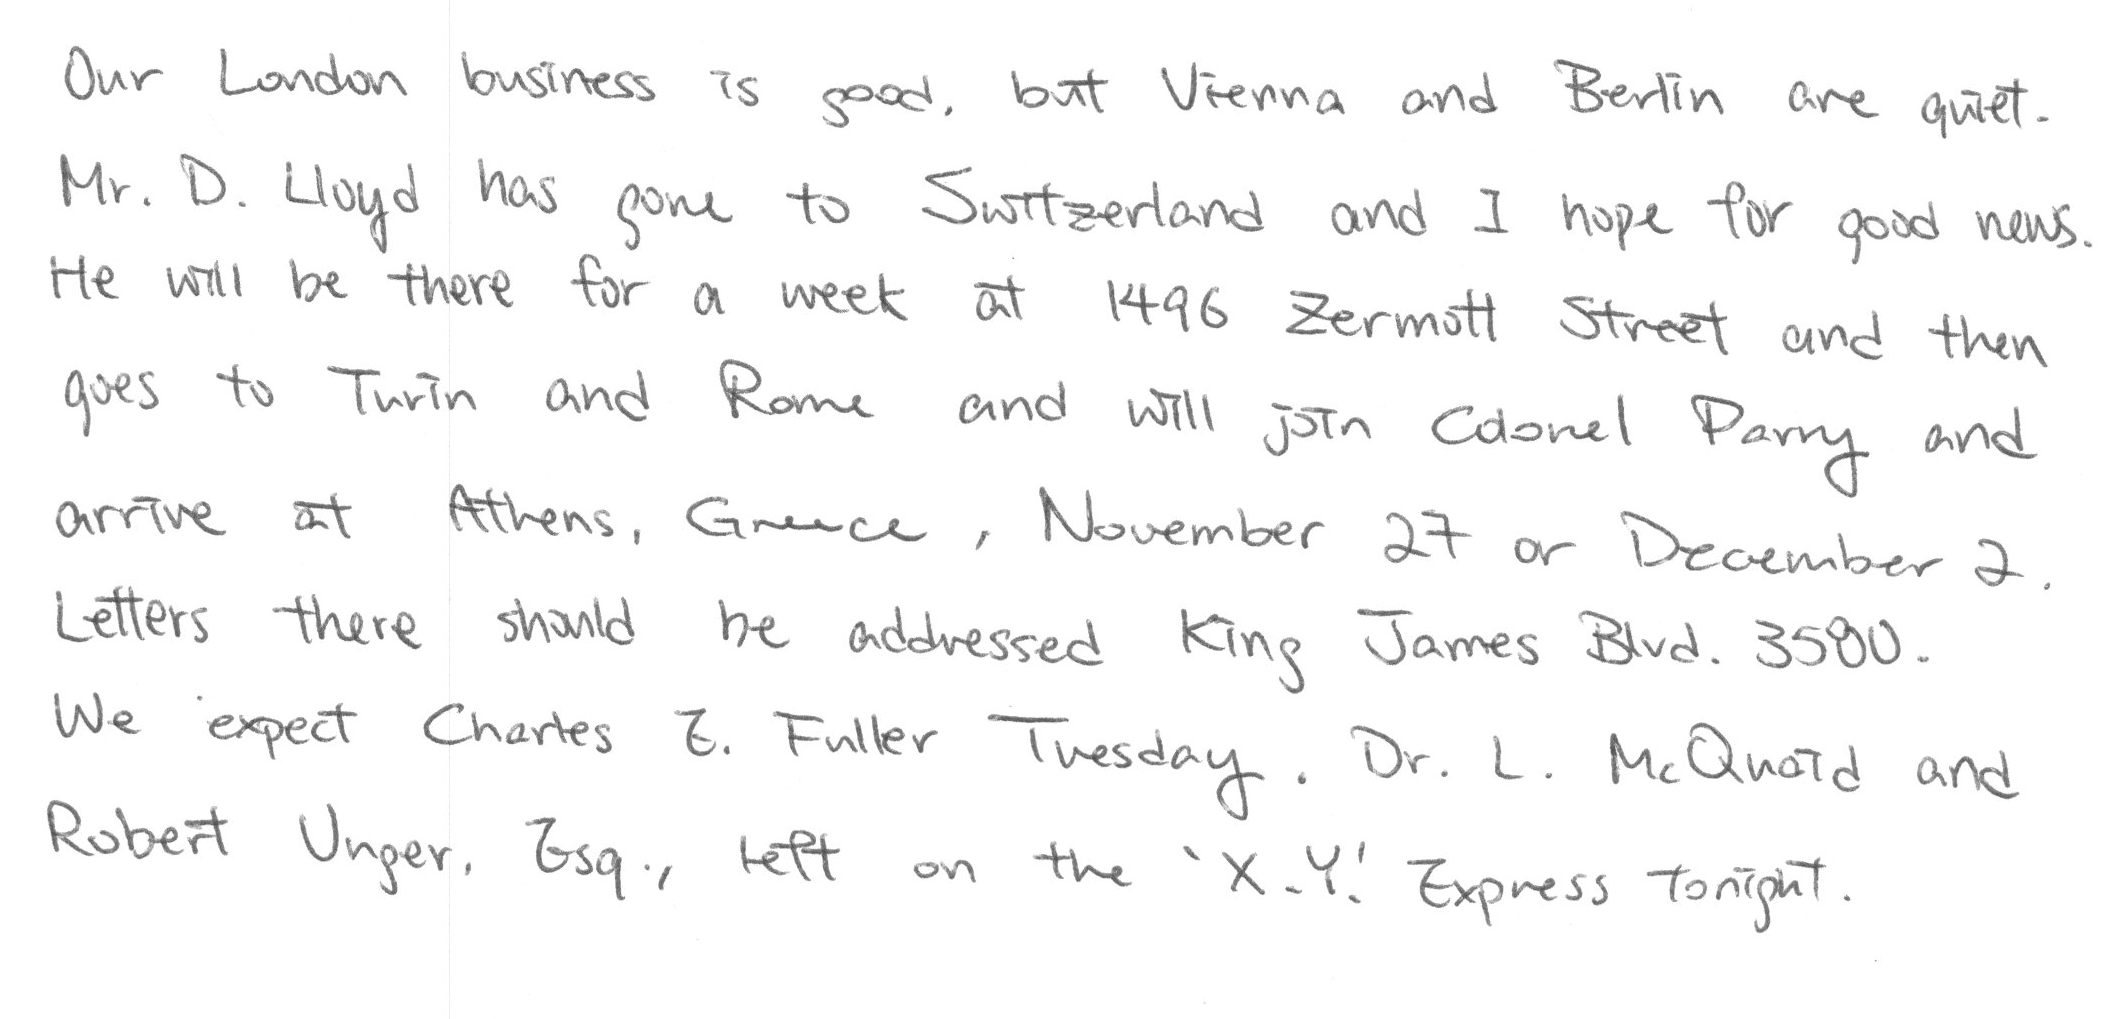 Our London business is good, but Vienna and Berlin are quiet.
Mr. D. Lloyd has gone to Switzerland and I hope for good news.
He will be there for a week at 1496 Zermott Street and then
goes to Turin and Rome and will join Colonel Parry and
arrive at Athens, Greece, November 27 or December 2.
Letters there should be addressed King James Blvd. 3580.
We expect Charles E. Fuller Tuesday. Dr. L. McQuaid and
Robert Unger, Esq., left on the 'X.Y.' Express tonight.